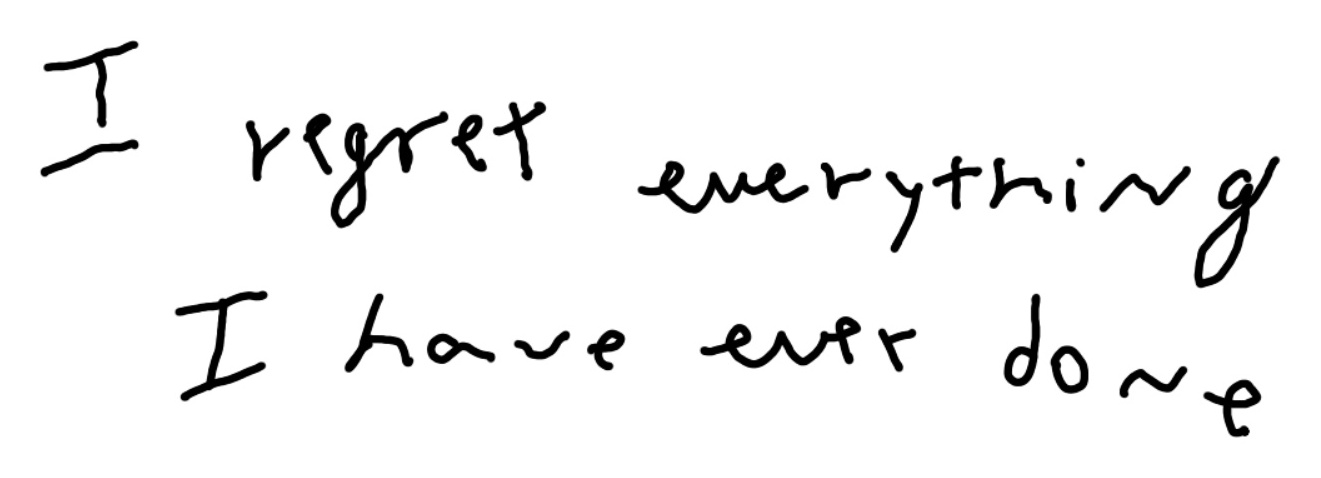 I regret everything
I have ever done